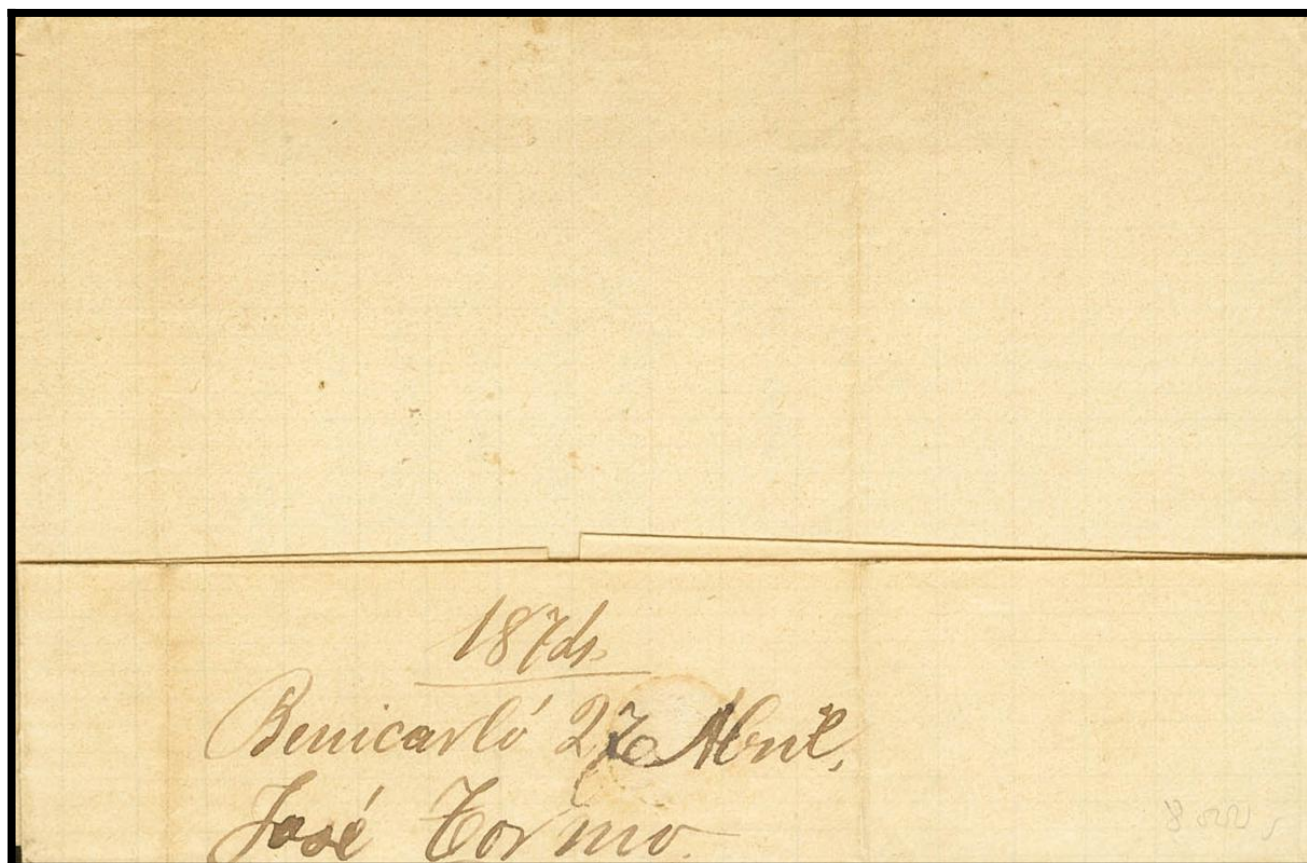 1874
Benicarló 27 Abril,
José Tormo.